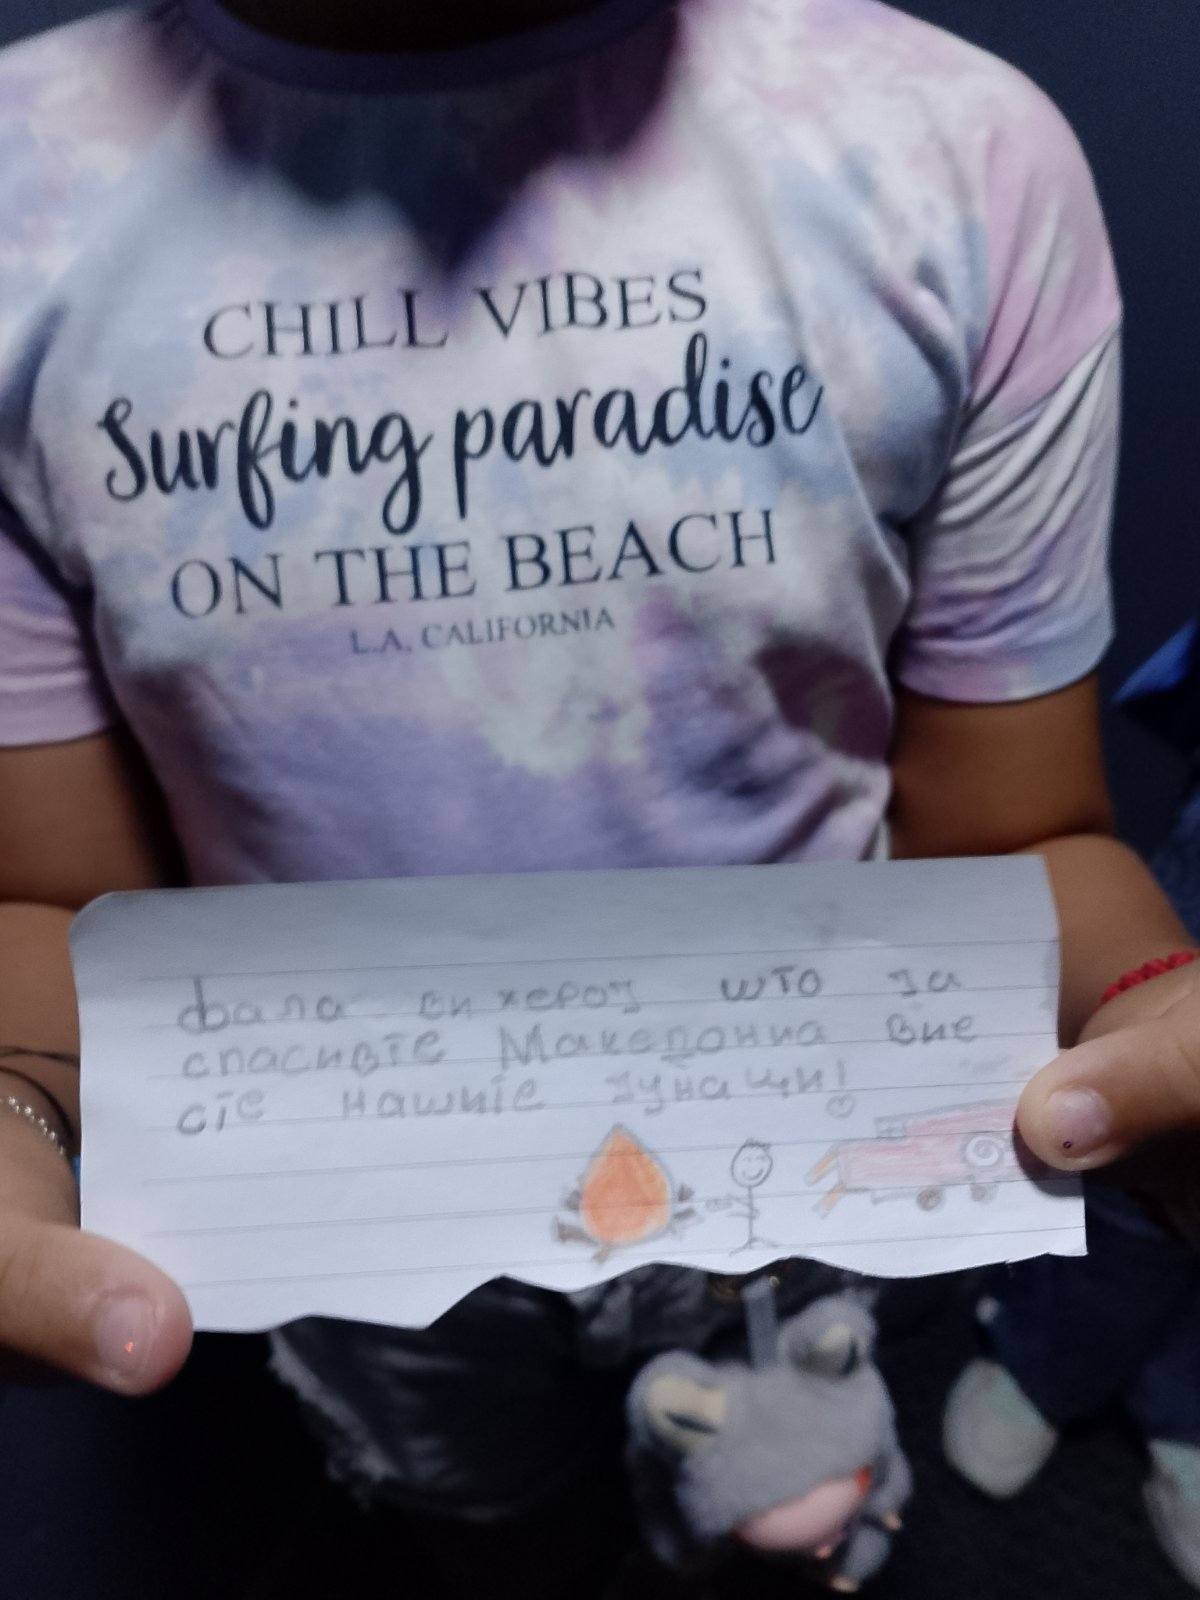 CHILL VIBES
Surfing paradise
ON THE BEACH
L.A. CALIFORNIA
фала ви херој што за
спасивте Македониа вие
сте нашите јунаци!